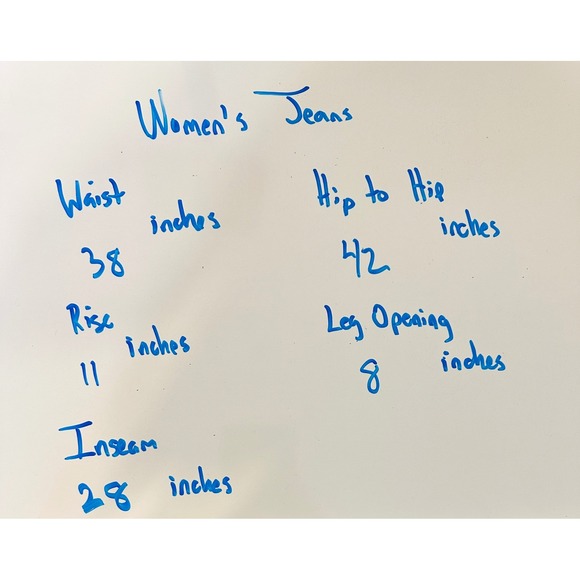 Women's Jeans
Waist
inches
38
Hip to Hip
inches
42
Rise
inches
11
Leg Opening
inches
8
Inseam
28 inches